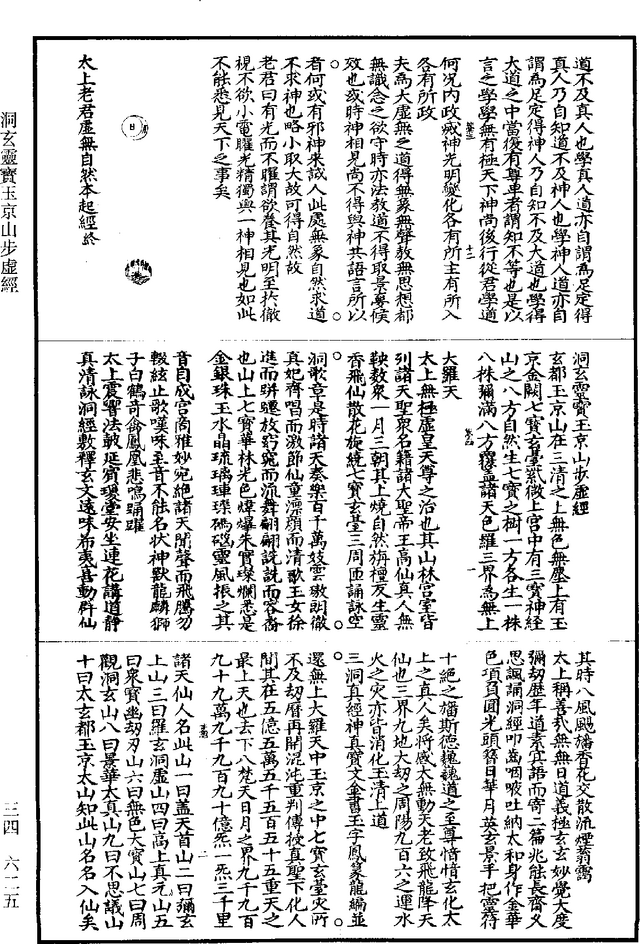 道不及真人也學真人道亦自謂為足定得
真人乃自知道不及神人也學神人道亦自
謂為足定得神人乃自知不及大道也學得
大道之中當復有尊卑者謂知不等也是以
言之學學無有極天下神尚後行從君學道
何況內政藏神光明變化各有所主有所入
各有所政
夫為大虛無之道得無象無聲教無思想都
無識念之欲守時亦法教道不得取景夢候
效也或時神相見尚不得與神共語言所以
者何或有邪神來誡人此處無象自然求道
不求神也略小取大故可得自然故
老君曰有光而不曜謂欲養其光明至於徹
視不欲小電曜光精獨與一神相見也如此
不能悉見天下之事矣
太上老君虛無自然本起經終
洞玄靈寶玉京山步虛經
玄都玉京山在三清之上無色無塵上有玉
京金闕七寶玄臺紫微上宮中有三寶神經
山之八方自然生七寶之樹一方各生一株
八株彌滿八方覆蓋諸天包羅三界為無上
大羅天
太上無極虛皇天尊之治也其山林宮室皆
列諸天聖眾名籍諸大聖帝王高仙真人無
鞅數眾一月三朝其上燒自然旃檀反生靈
香飛仙散花旋繞七寶玄臺三周匝誦詠空
洞歌章是時諸天奏樂百千萬妓雲璈朗徹
真妃齊唱而激節仙童凜顏而清歌玉女徐
進而跰躚放窈窕而流舞翩翩詵詵而容裔
也山上七寶華林光色煒爆朱實璨爛悉是
金銀珠玉水晶琉璃硨磲碼碯靈風振之其
音自成宮商雅妙宛絕諸天聞聲而飛騰勿
輟絃止歌嘆味至音不能名狀神獸龍麟獅
子白鶴奇禽鳳凰悲鳴踊躍
太上震響法鼓延賓瓊堂安坐蓮花講道靜
真清詠洞經敷釋玄文遠味希夷喜動群仙
其時八風颺旛香花交散流煙蓊靄
太上稱善哉無無曰道義極玄玄妙覺大度
彌劫歷年道素宜語而寄二篇兆能長齋久
思諷誦洞經叩齒咽液吐納太和身作金華
色項負圓光頭簪日華月英玄景手把靈符
十絕之旛斯德巍巍道之至尊愔愔玄化太
上之真人矣將感太無動天老致飛龍降天
仙也三界九地大劫之周陽九百六之運水
火之灾亦皆消化玉清上道
三洞真經神真寶文金書玉字鳳篆龍編並
還無上大羅天中玉京之中七寶玄臺灾所
不及劫曆再開混沌重判傳授真聖下化人
間其在五億五萬五千五百五十五重天之
最上天也去下八梵天日月之界九千九百
九十九萬九千九百九十億炁一炁三千里
諸天仙人名此山一曰蓋天首山二曰彌玄
上山三曰羅玄洞虛山四曰高上真元山五
曰眾寶幽劫刃山六曰無色大寶山七曰周
觀洞玄山八曰景華太真山九曰不思議山
十曰太玄都玉京太山知此山名名入仙矣
洞玄靈寶玉京山步虛經
三四 六二五